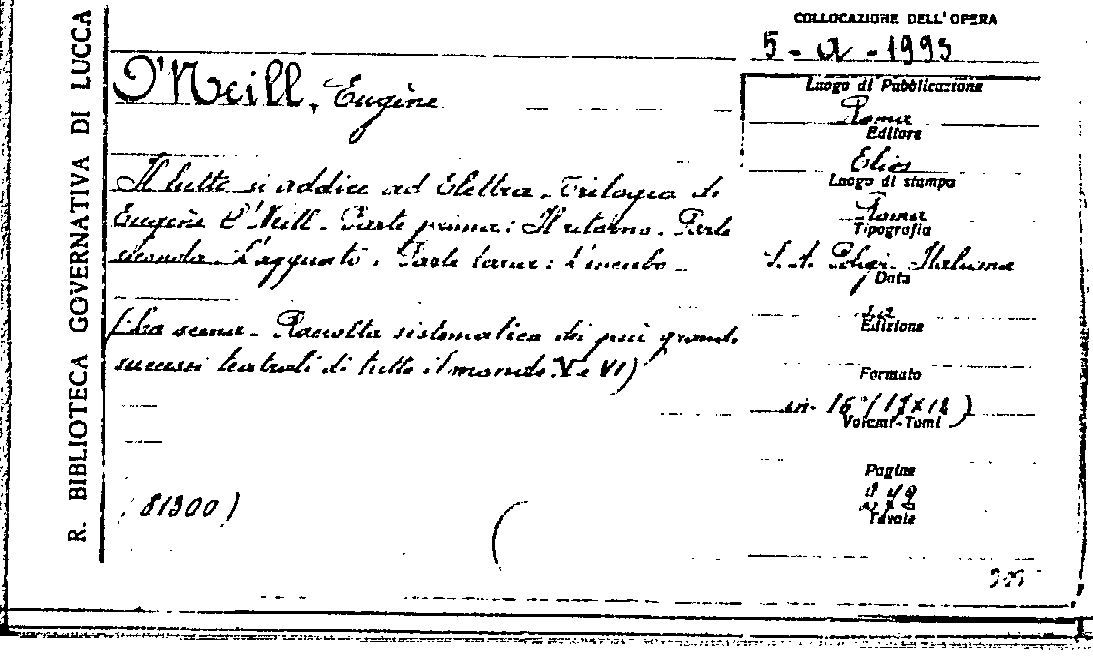 R. BIBLIOTECA GOVERNATIVA DI LUCCA
COLLOCAZIONE DELL'OPERA
5 - a - 1993
O'Neill, Eugène
Il lutto si addice ad Elettra. Trilogia di
Eugène O'Neill. Parte prima: Il ritorno. Parte
seconda. L'agguato. Parte terza: L'incubo
(La scena - Raccolta sistematica dei più grandi
successi teatrali di tutto il mondo. V e VI)
(81300)
Luogo di Pubblicazione
Roma
Editore
Elios
Luogo di stampa
Roma
Tipografia
S. A. Poligr. Italiana
Data
Edizione
Formato
in-16° (17x12)
Volumi-Tomi
Pagine
Tavole